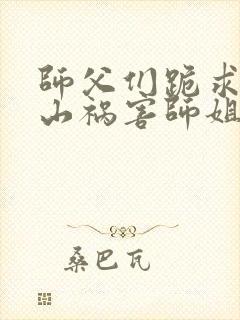 師父们跪求
山祸害師姐
桑巴瓦